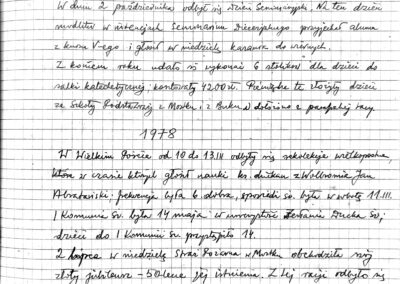 W dniu 2 października odbył się Dzień Seminaryjski. Na ten dzień
modlitw w intencjach Seminarium Diecezjalnego przyjechał alumn
z kursu V-ego i głosił w niedzielę kazania do wiernych.
Z końcem roku udało się wykonać 6 stolików dla dzieci do
salki katechetycznej; kosztowały 4200 zł. Pieniądze te złożyły dzieci
ze Szkoły Podstawowej z Mostku i z Buku, a dołożono z parafialnej tacy
1978
W Wielkim Poście od 10 do 13.III odbyły się rekolekcje wielkopostne,
które w czasie których głosił nauki ks. dziekan z Wolbromia Jan
Abratański; frekwencja była b. dobra, spowiedź św. była w sobotę 11.III.
I Komunia św. była 14 maja w uroczystość Zesłania Ducha Św;
dzieci do I Komunii św. przystąpiło 14.
2 lipca w niedzielę Straż Pożarna w Mostku obchodziła swój
złoty jubileusz – 50-lecie jej istnienia. Z tej racji odbyło się